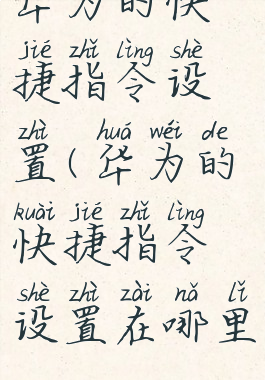 华为的快
jié zhǐ lìng shè
捷指令设
zhì huá wéi de
置(华为的
kuài jié zhǐ lìng
快捷指令
shè zhì zài nǎ lǐ
设置在哪里